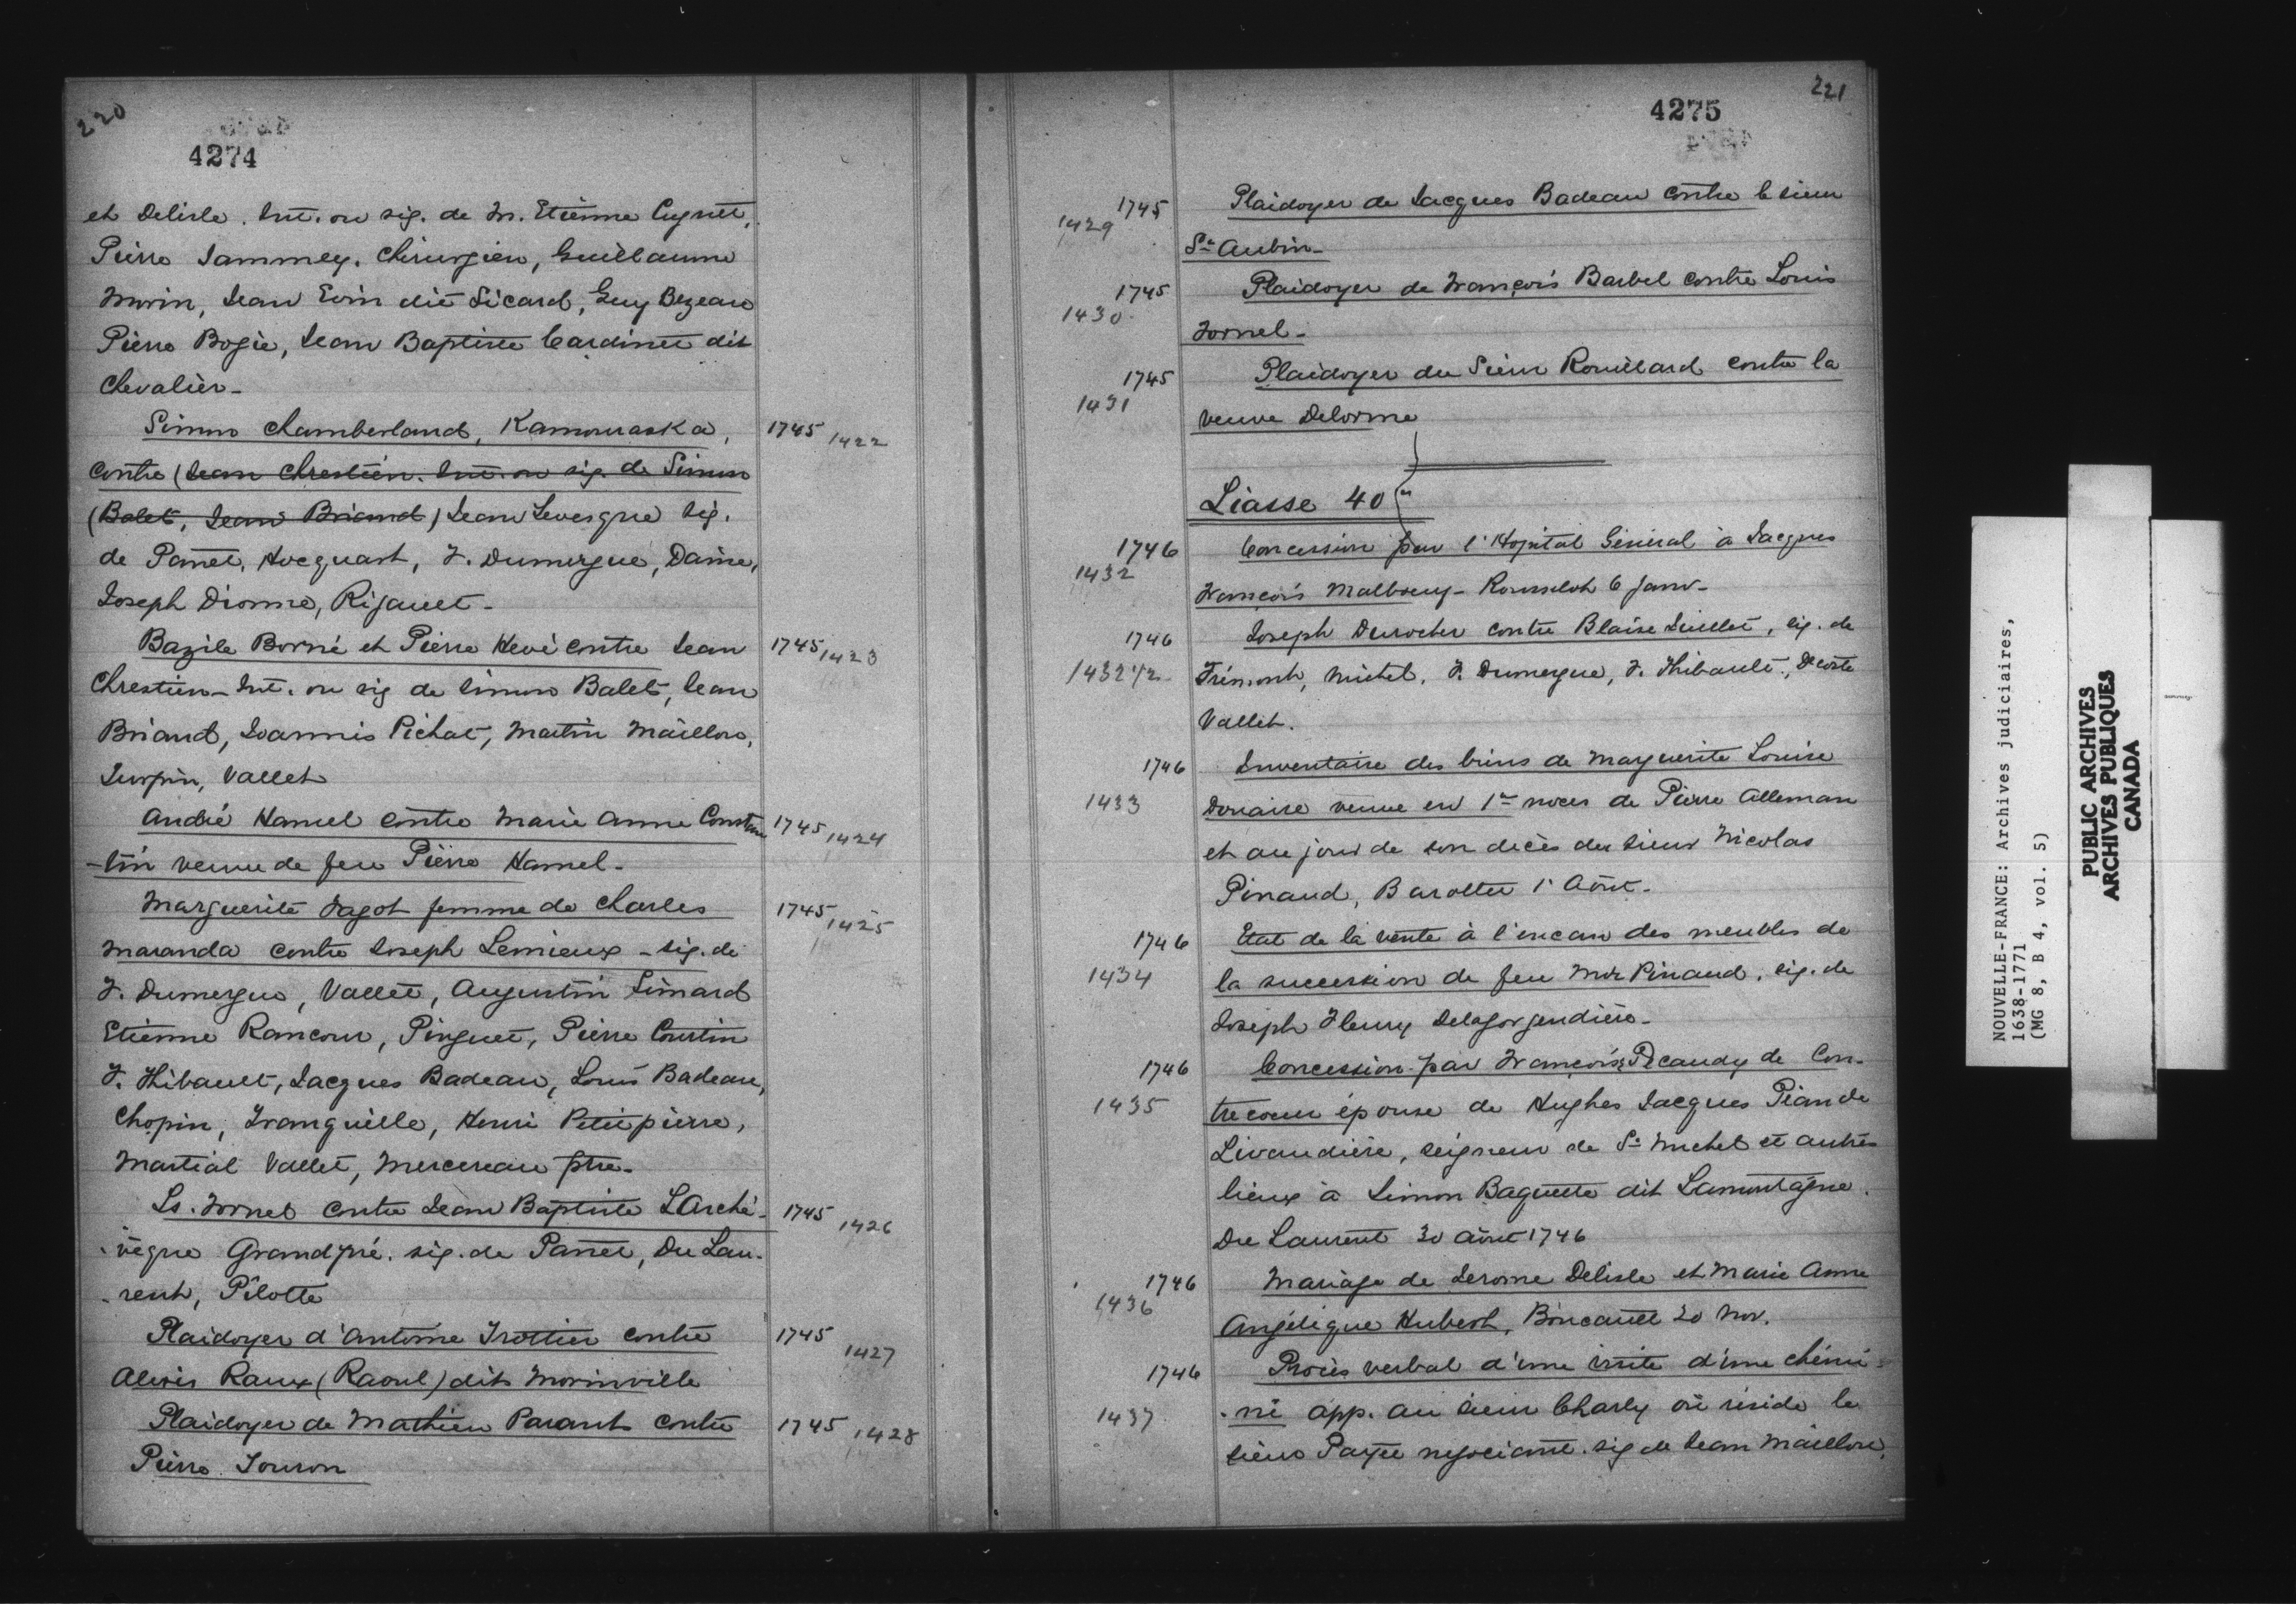 220
4274
et Delisle. Int. ou sig. de M. Etienne Cugnet,
Pierre Jammey, Chirurgien, Guillaume
Morin, Jean Evin dit Sicard, Guy Bezeau
Pierre Bogie, Jean Baptiste Cardinet dit
Chevalier -
Simon Chamberland, Kamouraska, 1745 1422
contre (Jean Chrestien. Int. ou sig. de Simon
(Balet, Jean Briand) Jean Levesque sig.
de Panet, Hocquart, F. Dumergue, Daine,
Joseph Dionne, Rigauet -
Bazile Borné et Pierre Hevé contre Jean 1745 1423
Chrestien - Int. ou sig de Simon Balet, Jean
Briand, Joannis Pichat, Martin Maillou,
Turpin, Vallet
André Hamel contre Marie Anne Constan 1745 1424
-tin veuve de feu Pierre Hamel -
Marguerite Jagot femme de Charles 1745 1425
Maranda contre Joseph Lemieux - sig. de
F. Dumergue, Vallet, Augustin Simard
Etienne Rancour, Pinguet, Pierre Courtin
F. Thibault, Jacques Badeau, Louis Badeau,
Chopin, Tranquille, Henri Petitpierre,
Martial Vallet, Mercereau ptre -
Ls. Fornel contre Jean Baptiste L'Arché- 1745 1426
-vêque Grandpré. sig. de Panet, Du Lau-
-rent, Pilotte
Plaidoyer d'Antoine Trottier contre 1745 1427
Alexis Raux (Raoul) dit Morinville
Plaidoyer de Mathieu Parant contre 1745 1428
Pierre Touron
221
4275
1745 1429 Plaidoyer de Jacques Badeau contre le sieur
St Aubin -
1745 1430 Plaidoyer de François Barbel contre Louis
Fornel -
1745 1431 Plaidoyer du Sieur Rouillard contre la
veuve Delorme
Liasse 40
1746 1432 Concession par l'Hopital Géniral à Jacques
François Malboeuf - Rousselot 6 Janv -
1746 Joseph Durocher contre Blaise Juillet, sig. de
1432 1/2 Trémont, Michel, F. Dumergue, F. Thibault, Decoste
Vallet.
1746 Inventaire des biens de Marguerite Louise
1433 Douaire veuve en 1res noces de Pierre Alleman
et au jour de son décès du sieur Nicolas
Pinaud, Barolet 1r Août -
1746 Etat de la vente à l'encan des meubles de
1434 la succession de feu Mr Pinaud, sig. de
Joseph Fleury Delagorgendière -
1746 Concession par François Pécaudy de Con-
1435 trecoeur épouse de Hughes Jacques Pian de
Livaudière, seigneur de St Michel et autres
lieux à Simon Baquette dit Lamontagne.
Du Laurent 30 Août 1746
1746 Mariage de Jerome Delisle et Marie Anne
1436 Angélique Hubert, Boucault 20 Nov.
1746 Procès verbal d'une visite d'une chémi-
1437 -né app. au sieur Charly où réside le
sieur Payee negociant. sig de Jean Maillou,
NOUVELLE-FRANCE: Archives judiciaires,
1638-1771
(MG 8, B 4, vol. 5)
PUBLIC ARCHIVES
ARCHIVES PUBLIQUES
CANADA